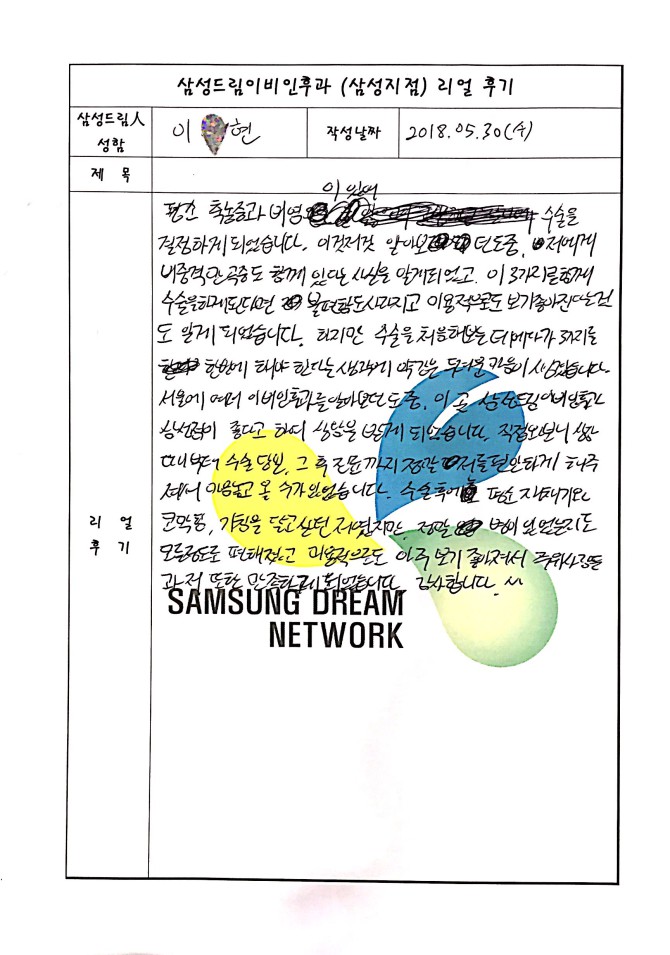 삼성드림이비인후과 (삼성지점) 리얼 후기
삼성드림人 성함
이 현
작성날짜
2018.05.30(수)
제 목
리 얼 후 기
이 있어
평소 축농증과 비염 수술을
결정하게 되었습니다. 이것저것 알아보던 도중, 저에게
비중격만곡증도 함께 있다는 사실을 알게되었고, 이 3가지를 함께
수술을하게된다면 불편함도사라지고 미용적으로도 보기좋아진다는것
도 알게 되었습니다. 하지만 수술을 처음해보는 데에다가 3가지를
한번에 해야 한다는 생각에 약간은 두려운 마음이 생겼습니다.
서울에 여러 이비인후과를 알아보던 도중, 이 곳 삼성드림이비인후과
삼성점이 좋다고 하여 상담을 받게 되었습니다. 직접와보니 상담
때부터 수술 당일, 그 후 까지 정말 저를 편안하게 해주
셔서 마음놓고 올 수가 있었습니다. 수술 후에 평소
코막힘, 가래을 달고살던 저였지만, 정말 병이 있었는지도
모를정도로 편해졌고 미용적으로도 아주 보기 좋아져서 주위사람들
과 저 또한 만족하게 되었습니다. 감사합니다. ^^
SAMSUNG DREAM
NETWORK